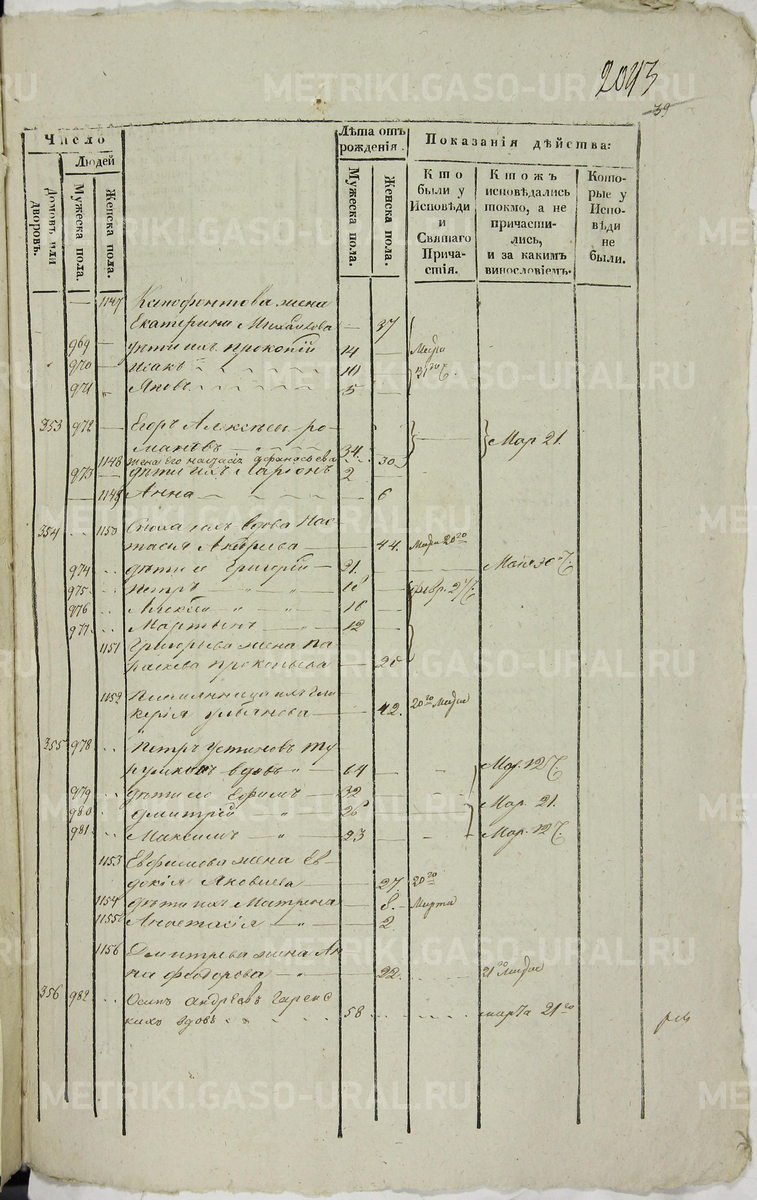 2043
39
METRIKI.GASO-URAL.RU
Число
Людей
Домовъ или дворовъ.
Мужеска пола.
Женска пола.
Лѣта отъ рожденія.
Мужеска пола.
Женска пола.
Показанія дѣйства:
Кто были у Исповѣди и Святаго Причастія.
Ктожъ исповѣдались токмо, а не причастились, и за какимъ винословіемъ.
Которые у Исповѣди не были.
1147 Ксенофонтова жена
Екатерина Михайлова — 37
969 — дѣти ихъ Прокопій 14 — Марта
970 — Исакъ 10 —
971 Яковъ 5 —
353 972 — Егоръ Алексѣевъ Ро-
мановъ 34 Мар 21.
1148 жена его Настасія Афанасьева 30
973 — дѣти ихъ Ларіонъ 2 —
1149 Анна — 6
354 1150 вдова Нас-
тасія Андреева — 44. Марта 20го
974 — дѣти ея Григорій — 21.
975 — Петръ 18
976 Алексѣй 16
977. Мартынъ — 12
1151 Григорьева жена Па-
раскева Прокопьева — 20
1152
керія Ульянова — 42. 20го Марта
355 978 Петръ Устиновъ
вдовъ — 64 Мар. 12
979 дѣти его Ефимъ — 32
980 Дмитрій 26 Мар. 21.
981 Максимъ 23 Мар. 12
1153 Евфимова жена Ев-
докія Яковлева — 27. 20го
1154 дѣти ихъ Матрена — 8. Марта
1155 Анастасія — 2.
1156 Дмитрева жена Ан-
на Федорова — 22. 21го Марта
356 982 Осипъ Андреевъ
вдовъ 58 марта 21го